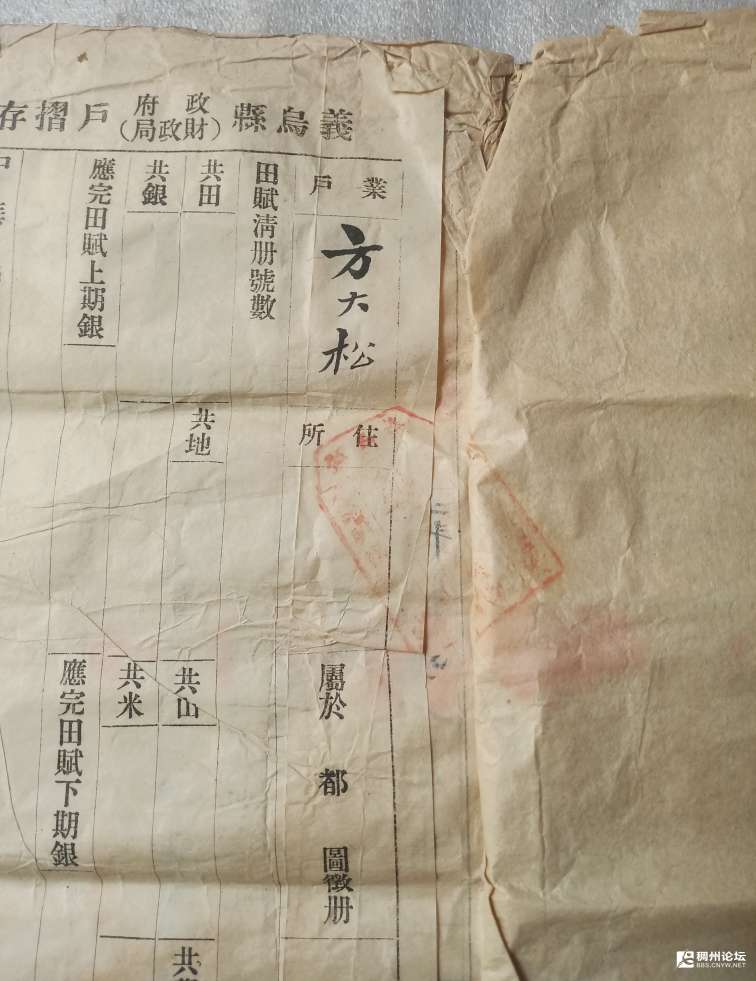 義烏縣政府(財政局)戶摺存
業戶
方大松
住所
屬於 都 圖徵册
田賦淸册號數
共田
共地
共山
共銀
共米
應完田賦上期銀
應完田賦下期銀
二年
稠州论坛
BBS.CNYW.NET